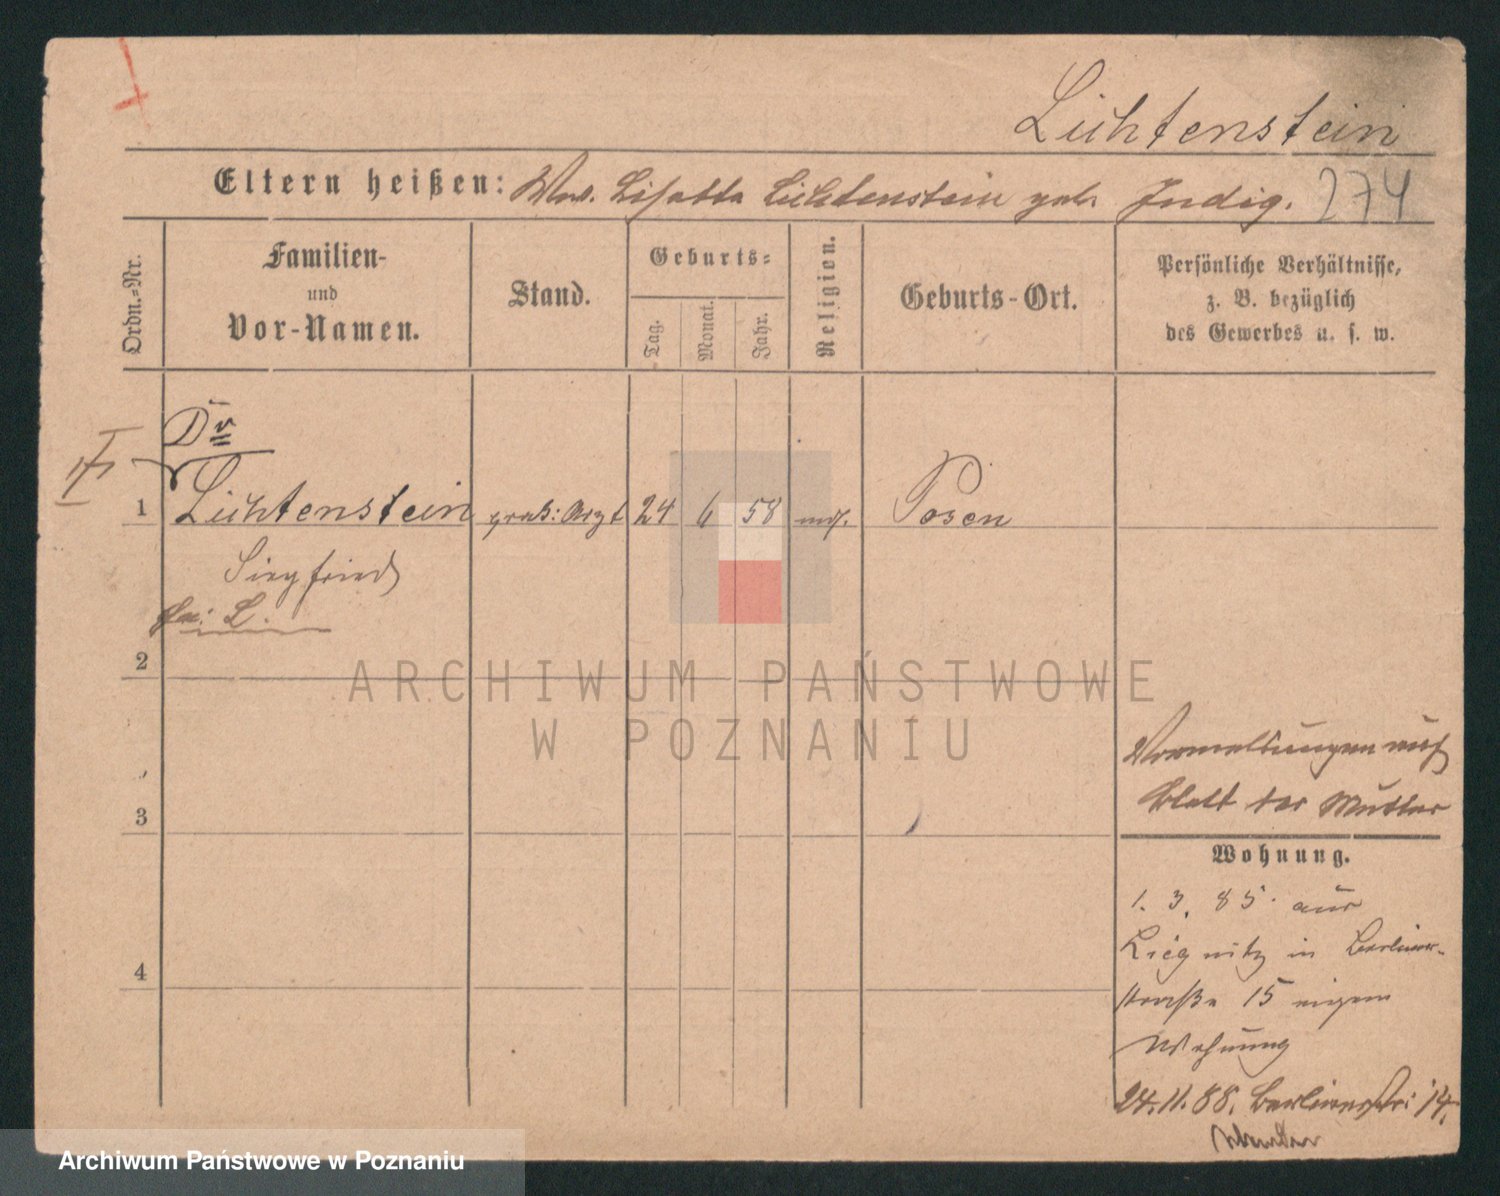 Lichtenstein
Eltern heißen: Ww. Lisette Lichtenstein geb. Indig. 274
Ordn.=Nr.
Familien-
und
Vor-Namen.
Stand.
Geburts=
Tag.
Monat.
Jahr.
Religion.
Geburts-Ort.
Persönliche Verhältnisse,
z. B. bezüglich
des Gewerbes u. s. w.
Dr
1 Lichtenstein prakt: Arzt 24 6 58 mos. Posen
Siegfried
L.
2
3
4
Vormeldungen auf
Blatt der Mutter
Wohnung.
1. 3. 85. aus
Liegnitz in Berliner-
straße 15 eigene
Wohnung
24.11.88. Berlinerstr: 14.
ARCHIWUM PAŃSTWOWE
W POZNANIU
Archiwum Państwowe w Poznaniu